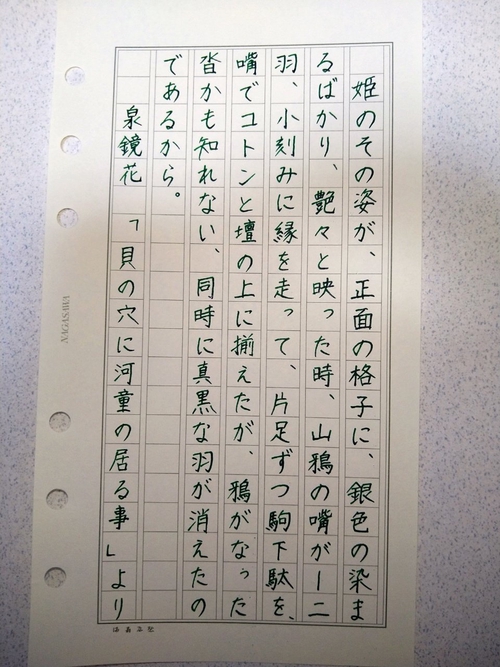 姫のその姿が、正面の格子に、銀色の染ま
るばかり、艶々と映った時、山鴉の嘴が一二
羽、小刻みに縁を走って、片足ずつ駒下駄を、
嘴でコトンと壇の上に揃えたが、鴉がなった
沓かも知れない、同時に真黒な羽が消えたの
であるから。
泉鏡花 「貝の穴に河童の居る事」より
NAGASAWA